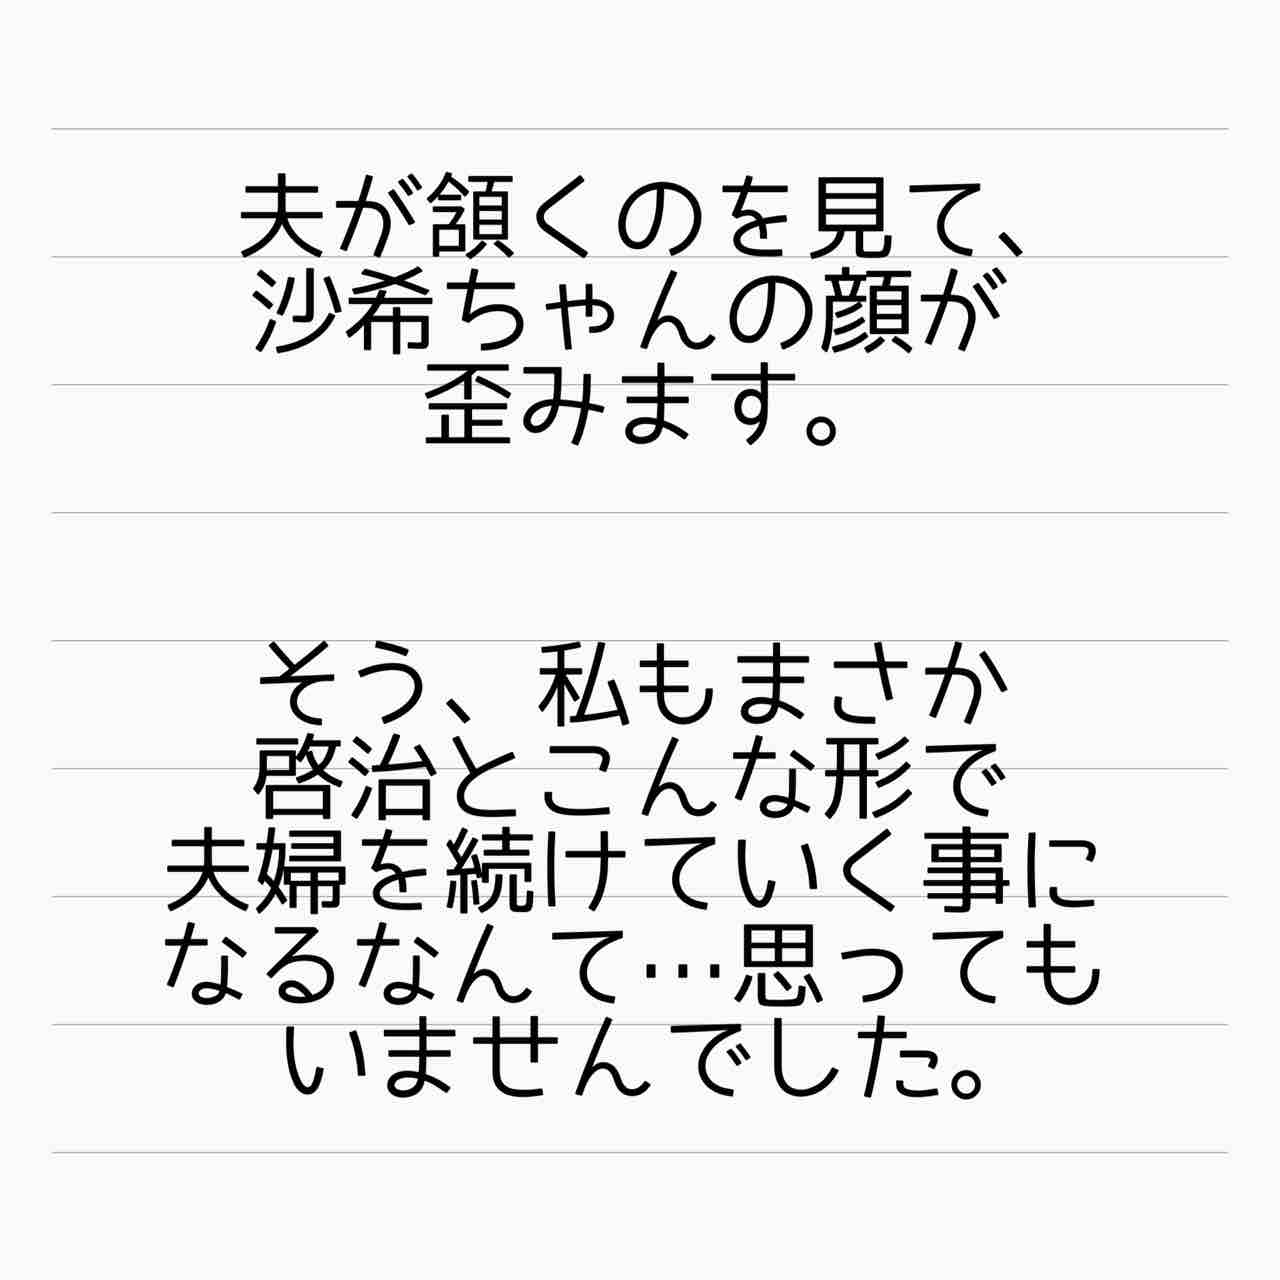 夫が頷くのを見て、
沙希ちゃんの顔が
歪みます。
そう、私もまさか
啓治とこんな形で
夫婦を続けていく事に
なるなんて…思っても
いませんでした。